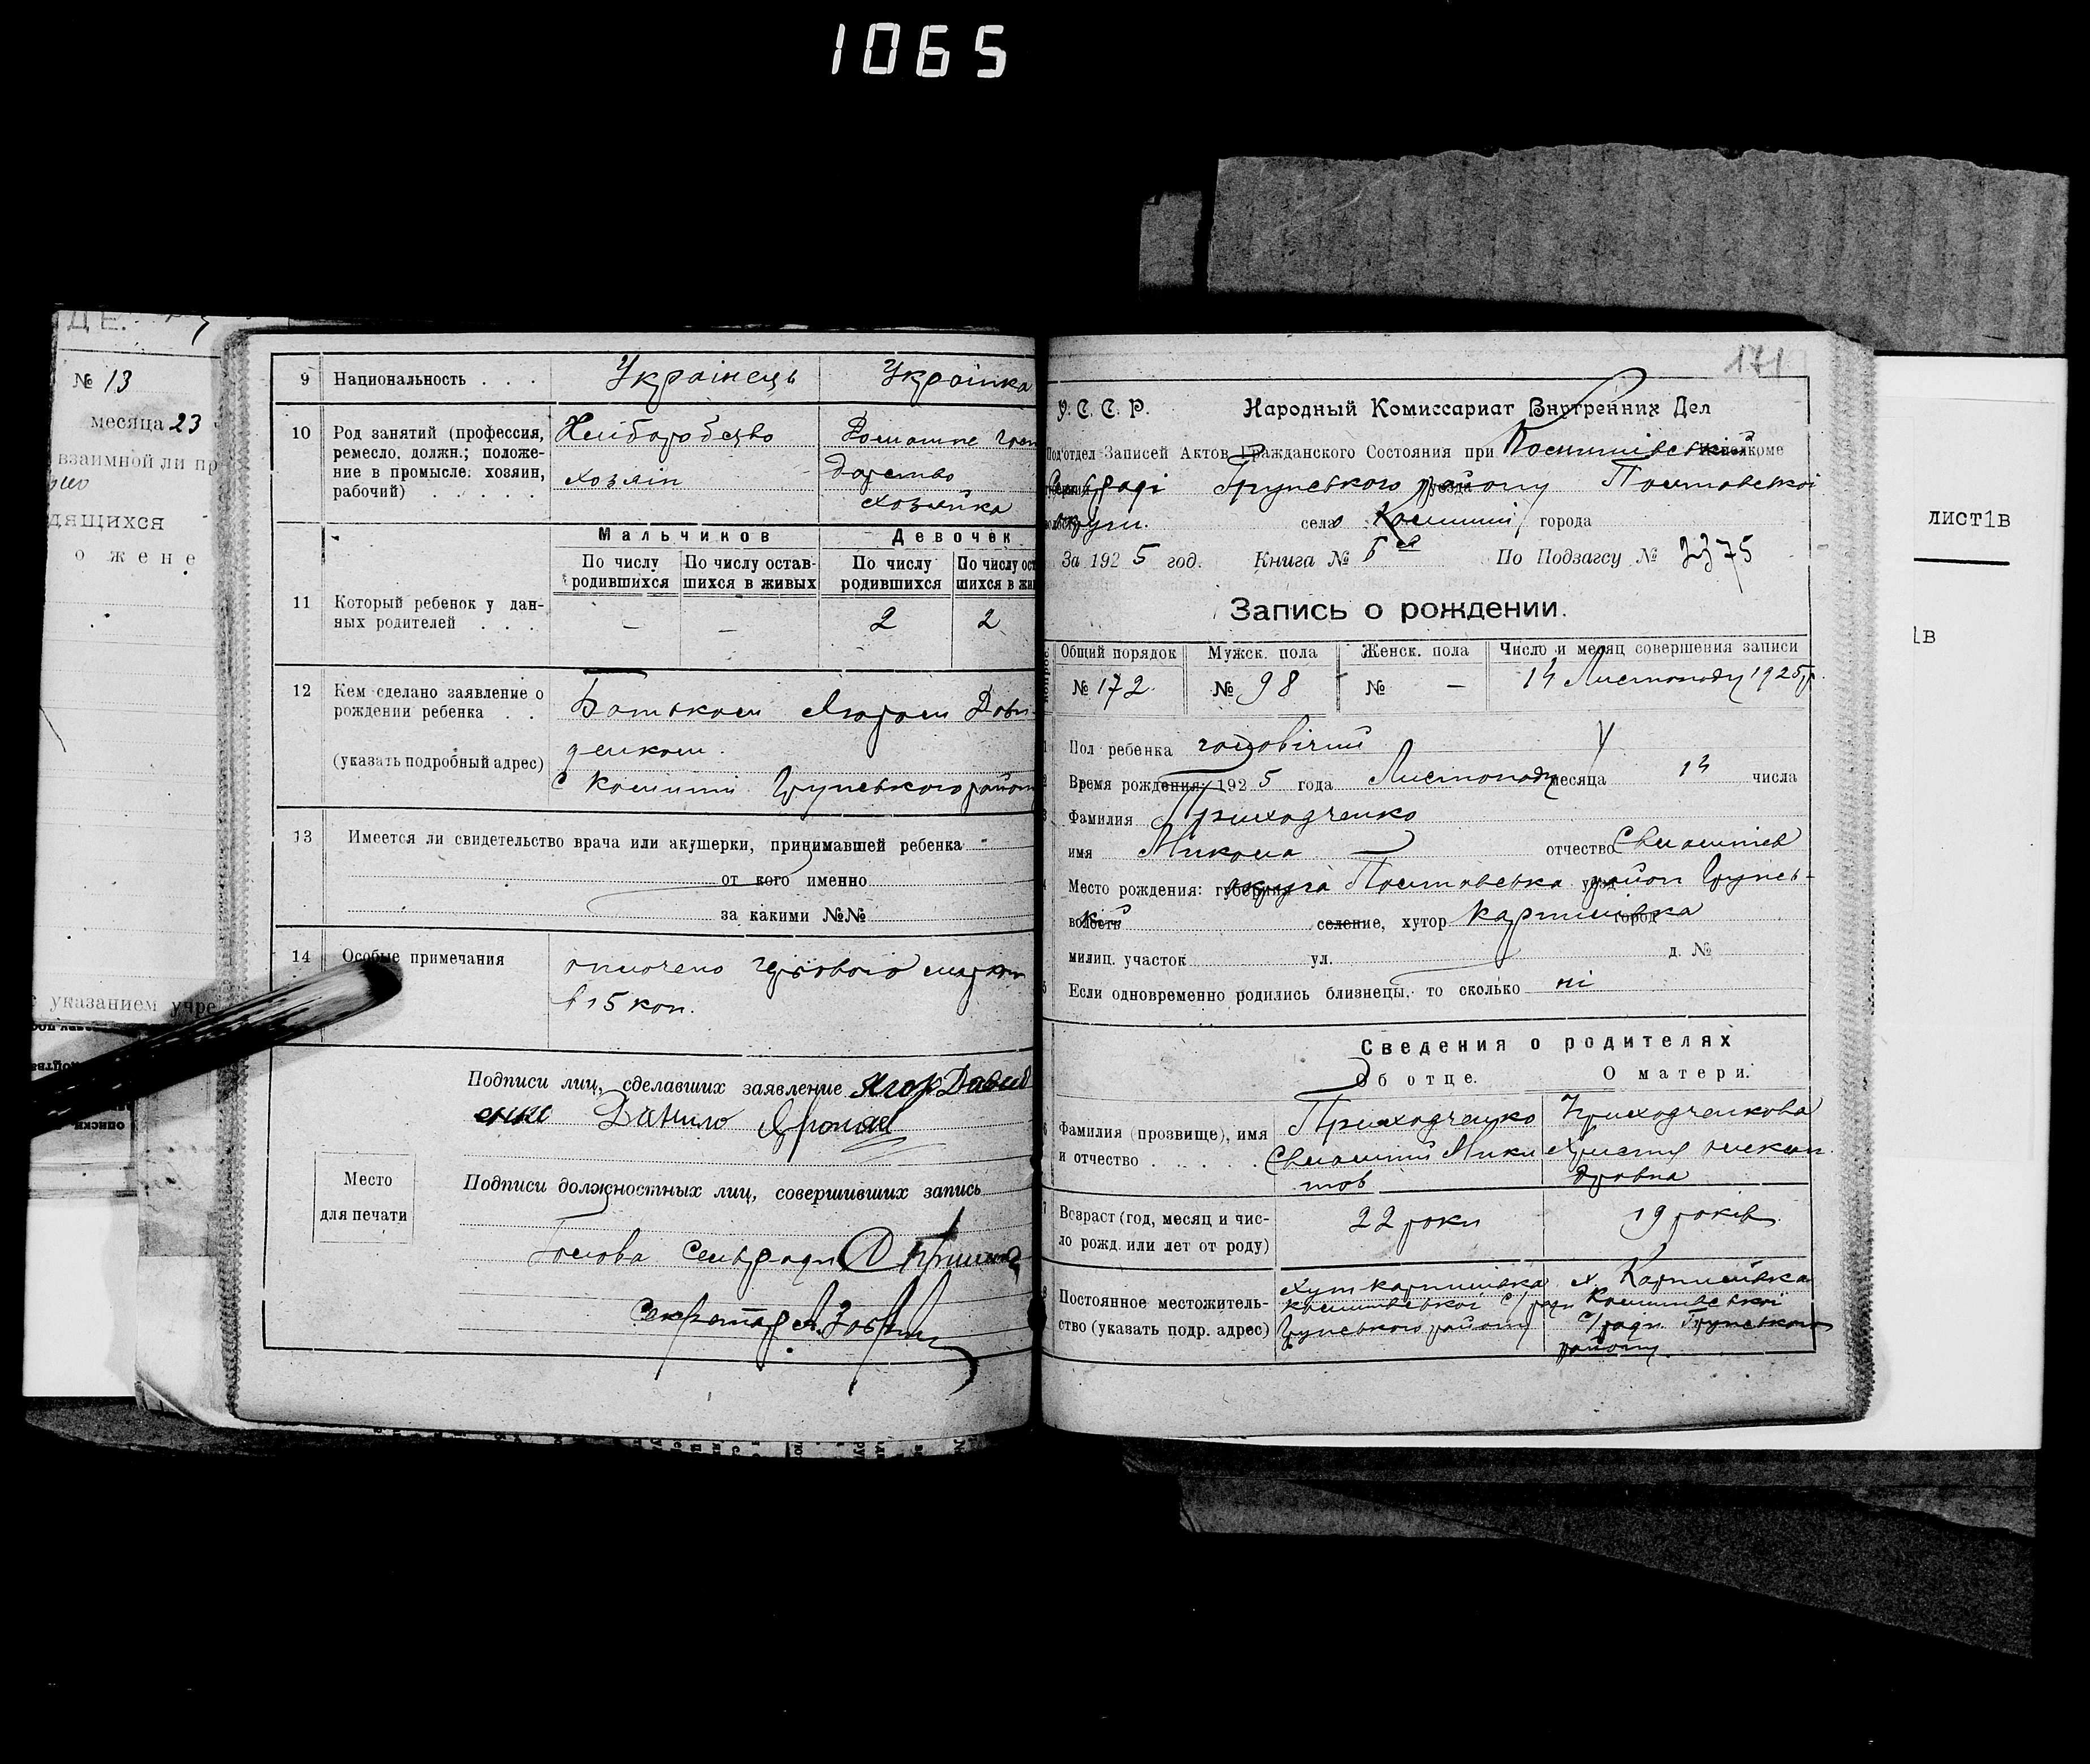 1065
№ 13
месяца 23
взаимной ли пр
дящихся
о жене
с указанием учре
9 Национальность . . . Українець Українка
10 Род занятий (профессия, ремесло, должн.; положение в промысле: хозяин, рабочий) . . . . . Хліборобство хозяін
Домашнє госпо
дарство
хозяйка
Мальчиков Девочек
По числу родившихся По числу оставшихся в живых По числу родившихся По числу ост
шихся в жив
11 Который ребенок у данных родителей . . . — — 2 2
12 Кем сделано заявление о рождении ребенка . . Батьком Ягором Дави-
денком.
(указать подробный адрес)
с Груньского район
13 Имеется ли свидетельство врача или акушерки, принимавшей ребенка -
от кого именно
за какими №№
14 Особые примечания
гербового
в 15 коп.
Подписи лиц, сделавших заявление Ягор Давид
енко Данило
Место
для печати
Подписи должностных лиц, совершивших запись
Голова Сельради
Секретар
171
У. С. С. Р. Народный Комиссариат Внутренних Дел
Под'отдел Записей Актов Гражданского Состояния при
Груньского району Полтовської
округи. села города
За 1925 год. Книга № По Подзагсу № 2375
Запись о рождении.
Общий порядок Мужск. пола Женск. пола Число и месяц совершения записи
№ 172 № 98 № — 14 Листопаду 1925 р.
Пол ребенка чоловічий
Время рождения: 1925 года Листопаду месяца 14 числа
Фамилия Приходченко
имя Микола отчество
Место рождения: губерния округа Полтовська район Грунсь-
волость кий селение, хутор Карпилівка город
милиц. участок ул. д. №
Если одновременно родились близнецы, то сколько ні
Сведения о родителях
Об отце. О матери.
Фамилия (прозвище), имя и отчество . . . . . Приходченко
Мики
тов
Приходченкова
Христя Олексан
дровна
Возраст (год, месяц и число рожд. или лет от роду) 22 роки 19 років
Постоянное местожительство (указать подр. адрес) Хут Карпилівка
С/ради
Груньского району
х. Карпилівка
С/ради Груньского
району
лист1в
1в